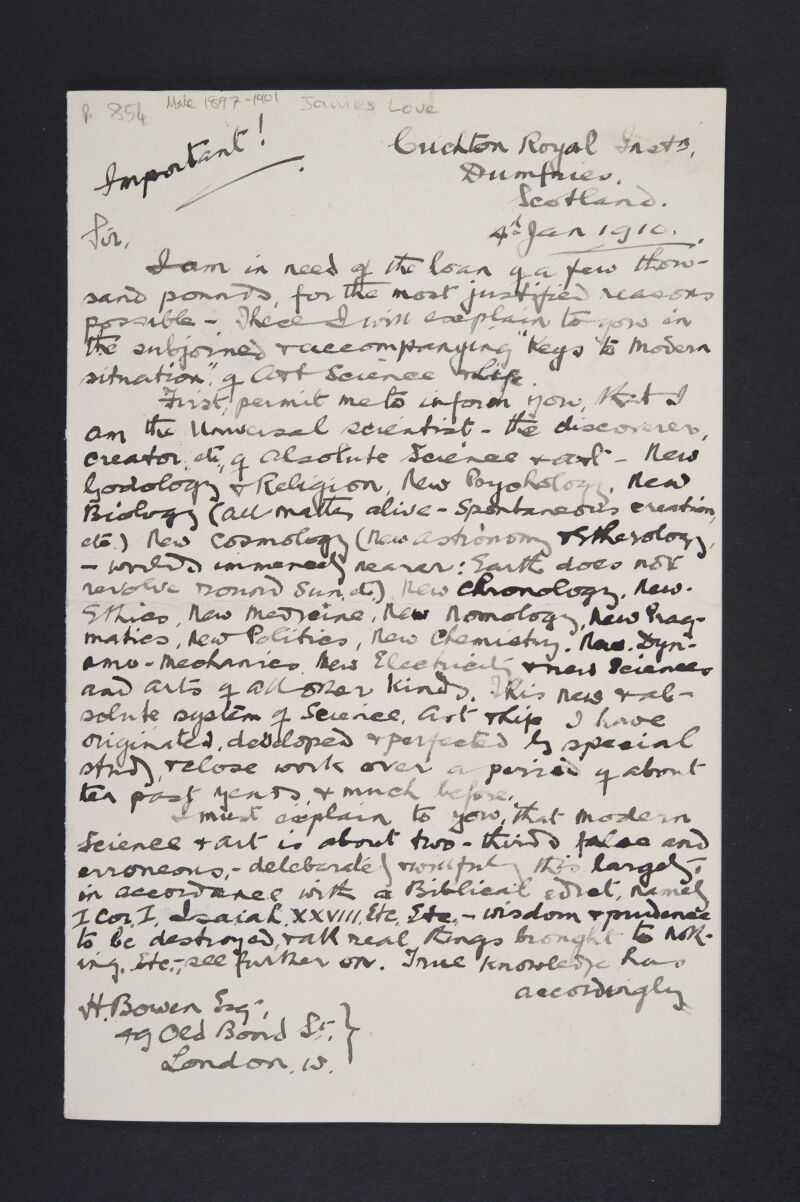 P. 854 Male 1897-1901 James Love
Important!
Crichton Royal Instn,
Dumfries,
Scotland.
4th Jan 1910.
Sir,
I am in need of the loan of a few thou-
sand pounds, for the most justified reasons
possible - These I will explain to you in
the subjoined & accompanying "Keys to Modern
situation", of Art Science & Life.
First, permit me to inform you, that I
am the Universal scientist - the discoverer,
creator, etc, of Absolute Science & art - New
Godology & Religion, New Psychology, New
Biology (all matter alive - Spontaneous creation,
etc.) New Cosmology (New astronomy & Etherology,
- worlds immensely nearer: Earth does not
revolve round Sun, etc) New Chronology, New-
Ethics, New Medicine, New Nomology, New Prag-
matics, New Politics, New Chemistry. New Dyn-
amo-Mechanics New Electricity & new Sciences
and arts of all other kinds. This new & ab-
solute system of Science, Art & Life I have
originated, developed & perfected by special
study, & close work over a period of about
ten past years, & much before.
I must explain to you, that modern
Science & art is about two-thirds false and
erroneous, - deleberately & willfully this largely,
in accordance with a Biblical edict, namely
I Cor. I, Isaiah XXVIII, Etc, Etc, - wisdom & prudence
to be destroyed, & all real things brought to noth-
ing, Etc, - see further on. True knowledge has
accordingly
H. Bowen Esq.,
49 Old Bond St.,
London, W.